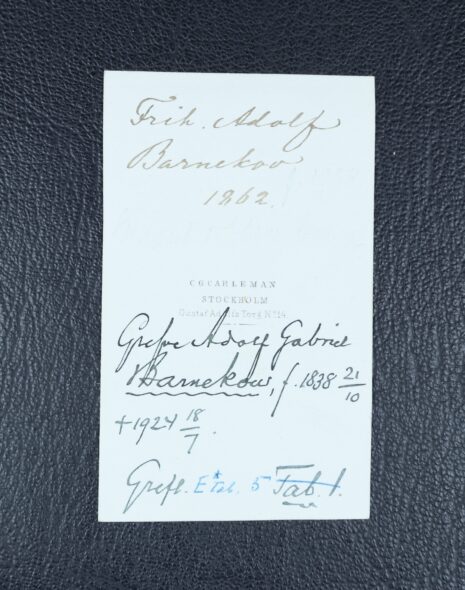 Frih. Adolf
Barnekow
1862.
C G CARLEMAN
STOCKHOLM
Gustaf Adolfs Torg N:14.
Grefve Adolf Gabriel
Barnekow, f. 1838 21/10
†1924 18/7.
Grefl. 5 Tab. 1.